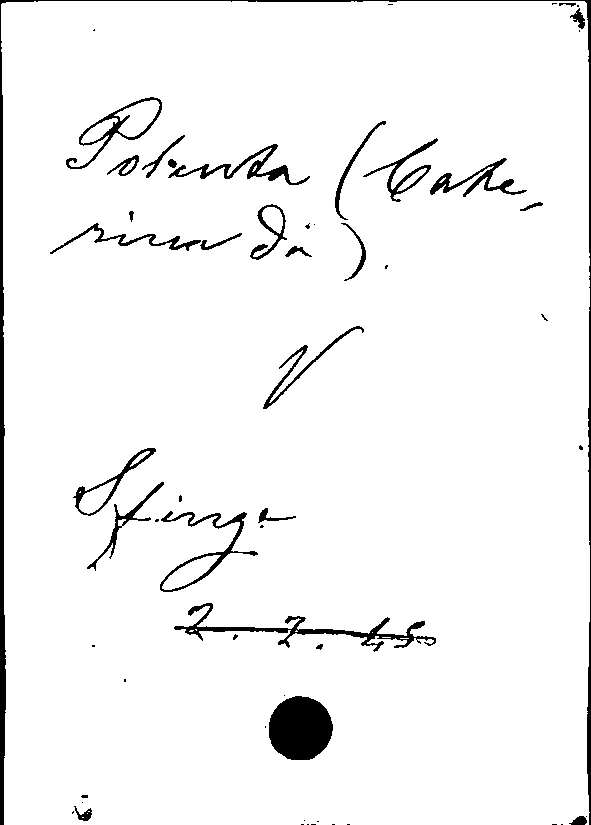 Polenta (Cate-
rina da).
V
Sfinge
2. 7. 45